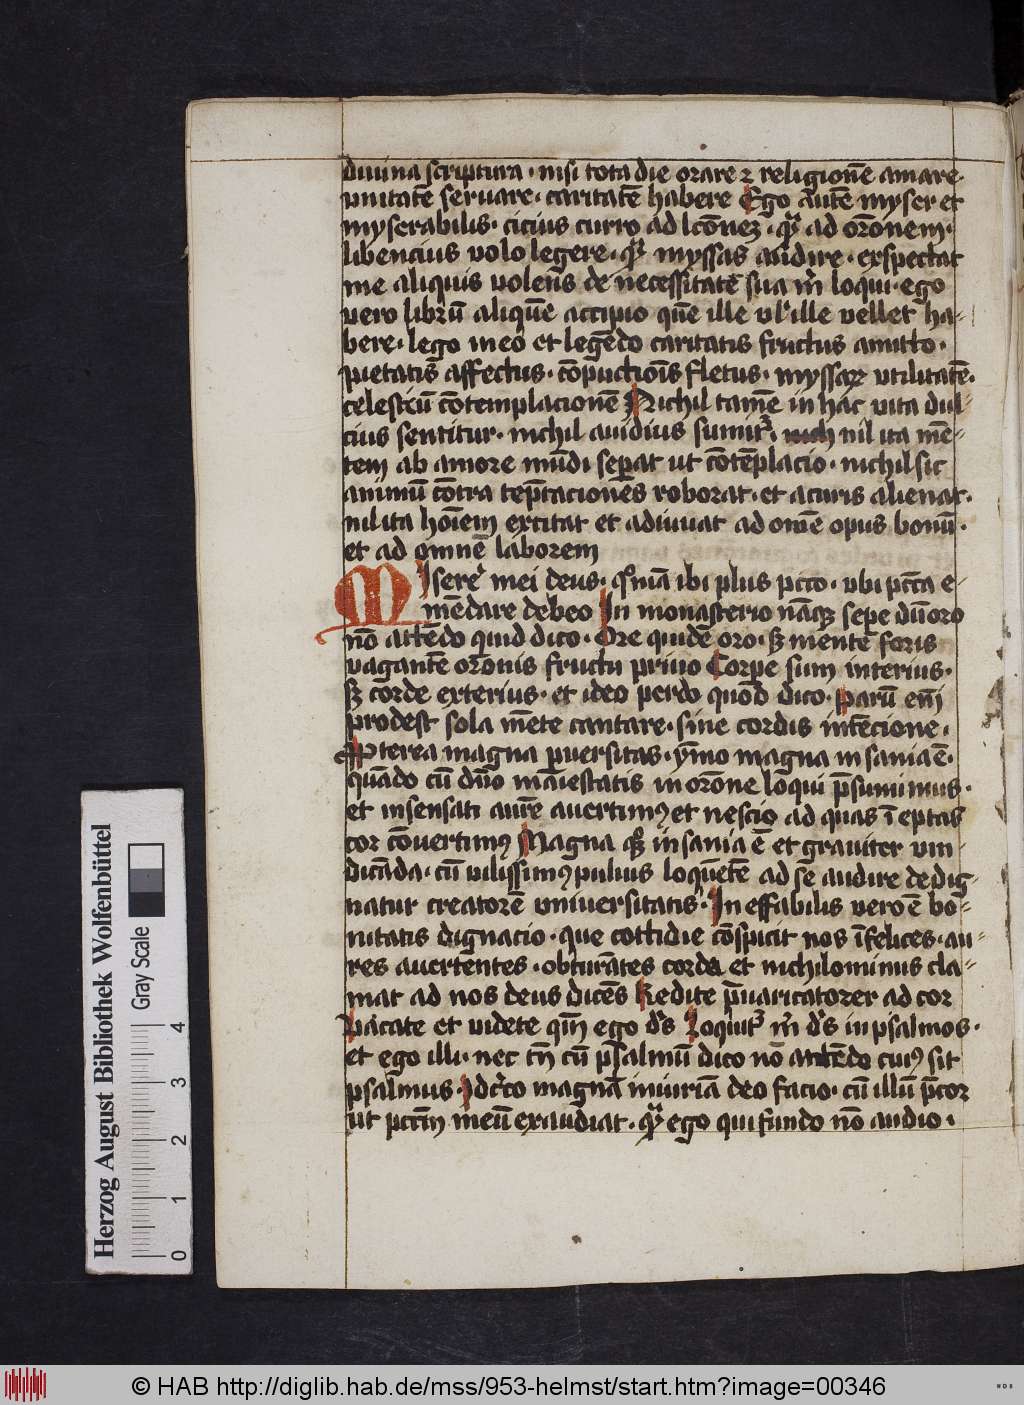 diuina scriptura · nisi tota die orare ⁊ religionē amare·
vnitatē seruare · caritatē habere Ego autē myser et
myserabilis · cicius curro ad lcōneꝫ · qͣ ad orōnem ·
libencius volo legere · qͣ myssas audire · exspectat
me aliquis volens de necessitate sua m̄ loqui · ego
vero librū aliquē accipio quē ille vl' ille vellet ha-
bere · lego in eo et legēdo caritatis fructus amitto ·
pietatis affectus · cōpūctiōis fletus · myssaꝝ vtilitatē ·
celestiū cōtemplacionē Nichil tamē in hac vita dul-
cius sentitur · nichil auidius sumit᷑ · nich nil ita mē-
tem ab amore mūdi seꝑat ut cōtēplacio · nichil sic
animū cōtra tēptaciones roborat · et a curis alienat ·
nil ita hoīem excitat et adiuuat ad omē opus bonū ·
et ad omnē laborem
Miserẽ mei deus · qͦniā ibi plus pcco · vbi pctā e-
mēdare debeo In monasterio nāqꝫ sepe dū oro
nō attēdo quid dico · Ore quidē oro · sꝫ mente foris
vagante orōnis fructu priuo Corpe sum interius ·
sꝫ corde exterius · et ideo perdo quod dico · Parū eni
prodest sola mēte cantare · sine cordis intēcione ·
Pterea magna ꝑuersitas · ymo magna insania ē ·
quādo cū dn̄o maiestatis in orōne loqui p̄sumimus ·
et insensati aurē auertimꝰ et nescio ad quas ī eptas
cor cōuertimꝰ Magna qꝫ insania ē et grauiter vin-
dicāda · cū vilissimꝰ puluis loquētē ad se audire dedig-
natur creatorē vniuersitatis · In effabilis vero ē bo-
nitatis dignacio · que cottidie cōspicit nos īfelices · au-
res auertentes · obturātes corda et nichilominus cla-
mat ad nos deus dicēs Redite p̄uaricatorer ad cor
Vacate et videte qm̄ ego ds̄ Loquit᷑ m̄ ds̄ in psalmos ·
et ego illi · nec tn̄ cū psalmū dico nō attēdo cuiꝰ sit
psalmus · Idcͦco magnā iniuriā deo facio · cū illū p̄cor
ut pcēm meū exaudiat · qͣ ego qui fundo nō audio ·
Herzog August Bibliothek Wolfenbüttel
Gray Scale
0 1 2 3 4
© HAB http://diglib.hab.de/mss/953-helmst/start.htm?image=00346